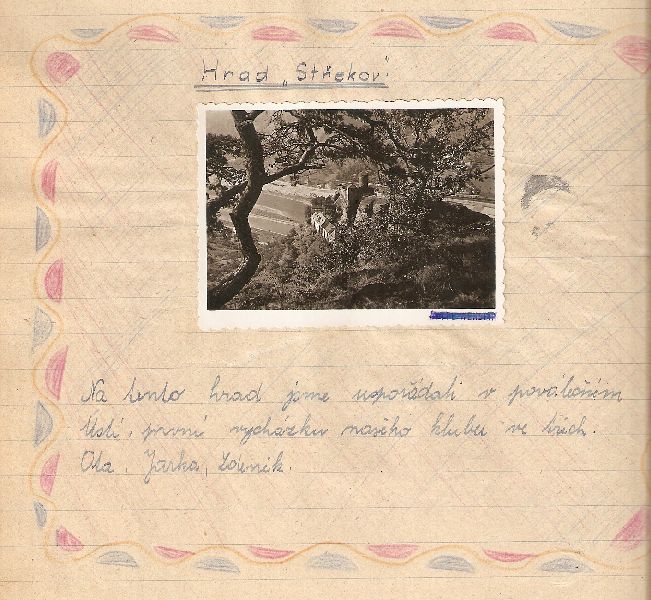 Hrad „Střekov"
Na tento hrad jsme uspořádali v poválečním
Ústí, první vycházku našeho klubu ve třech.
Ota, Jarka, Zdeněk.